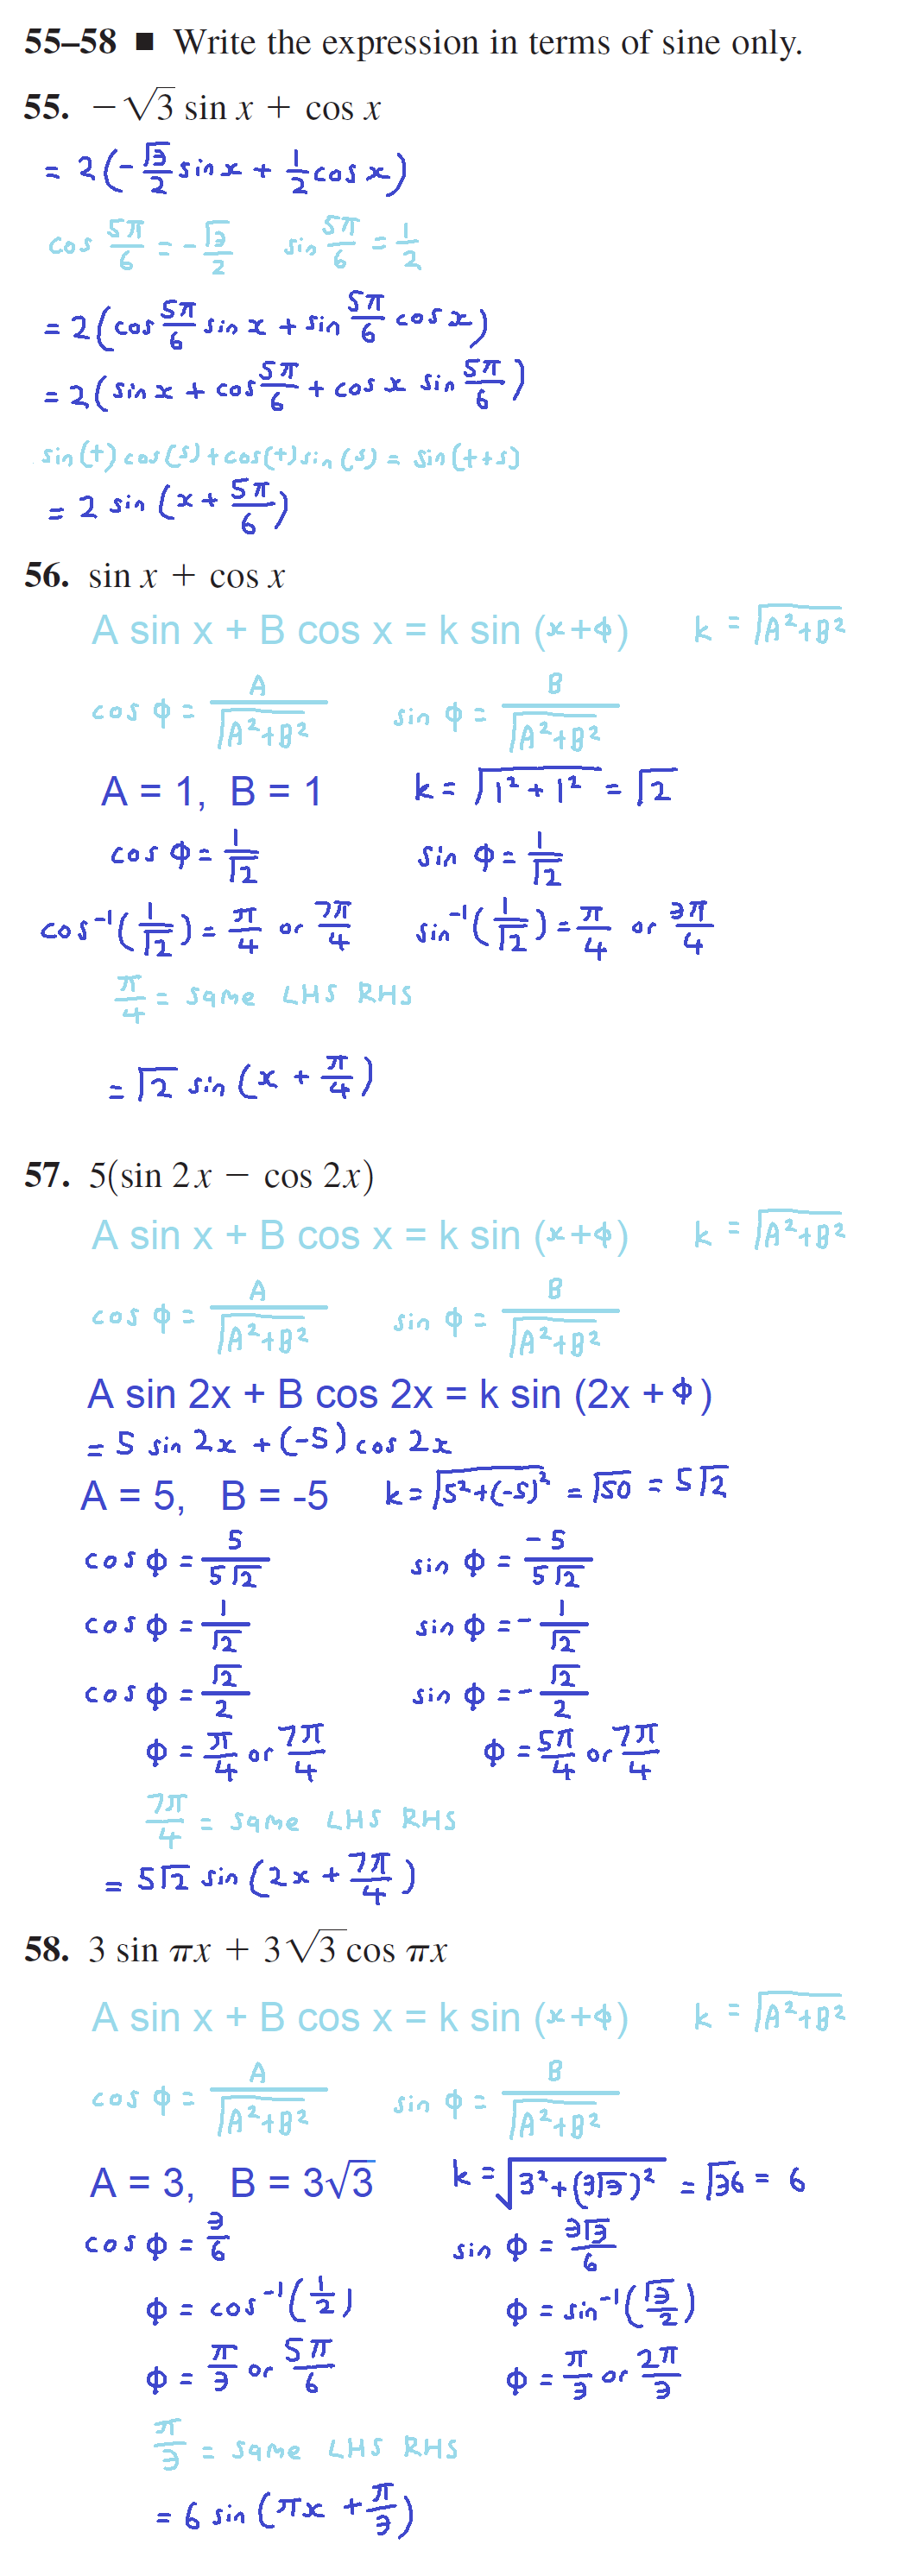 55–58 ■ Write the expression in terms of sine only.
55. −√3 sin x + cos x
= 2(-√3/2 sin x + 1/2 cos x)
cos 5π/6 = -√3/2 sin 5π/6 = 1/2
= 2(cos 5π/6 sin x + sin 5π/6 cos x)
= 2(sin x + cos 5π/6 + cos x sin 5π/6)
sin(t) cos(s) + cos(t) sin(s) = sin(t+s)
= 2 sin (x + 5π/6)
56. sin x + cos x
A sin x + B cos x = k sin (x+ϕ) k = √A²+B²
cos ϕ = A/√A²+B² sin ϕ = B/√A²+B²
A = 1, B = 1 k = √1² + 1² = √2
cos ϕ = 1/√2 sin ϕ = 1/√2
cos⁻¹(1/√2) = π/4 or 7π/4 sin⁻¹(1/√2) = π/4 or 3π/4
π/4 = same LHS RHS
= √2 sin (x + π/4)
57. 5(sin 2x − cos 2x)
A sin x + B cos x = k sin (x+ϕ) k = √A²+B²
cos ϕ = A/√A²+B² sin ϕ = B/√A²+B²
A sin 2x + B cos 2x = k sin (2x + ϕ)
= 5 sin 2x + (-5) cos 2x
A = 5, B = -5 k = √5²+(-5)² = √50 = 5√2
cos ϕ = 5/5√2 sin ϕ = -5/5√2
cos ϕ = 1/√2 sin ϕ = -1/√2
cos ϕ = √2/2 sin ϕ = -√2/2
ϕ = π/4 or 7π/4 ϕ = 5π/4 or 7π/4
7π/4 = same LHS RHS
= 5√2 sin (2x + 7π/4)
58. 3 sin πx + 3√3 cos πx
A sin x + B cos x = k sin (x+ϕ) k = √A²+B²
cos ϕ = A/√A²+B² sin ϕ = B/√A²+B²
A = 3, B = 3√3 k = √3²+(3√3)² = √36 = 6
cos ϕ = 3/6 sin ϕ = 3√3/6
ϕ = cos⁻¹(1/2) ϕ = sin⁻¹(√3/2)
ϕ = π/3 or 5π/6 ϕ = π/3 or 2π/3
π/3 = same LHS RHS
= 6 sin (πx + π/3)